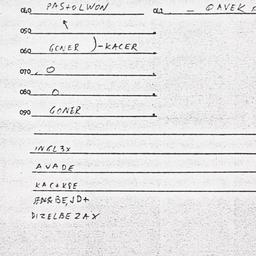 040 PASTOLWON 041 - OAVEK
050
060 GONER )-KACER
070 . O
080 O
090 GONER
INGL3X
AVADE
KACTKSE
ANGBE,JD+
DIZELBE ZAX